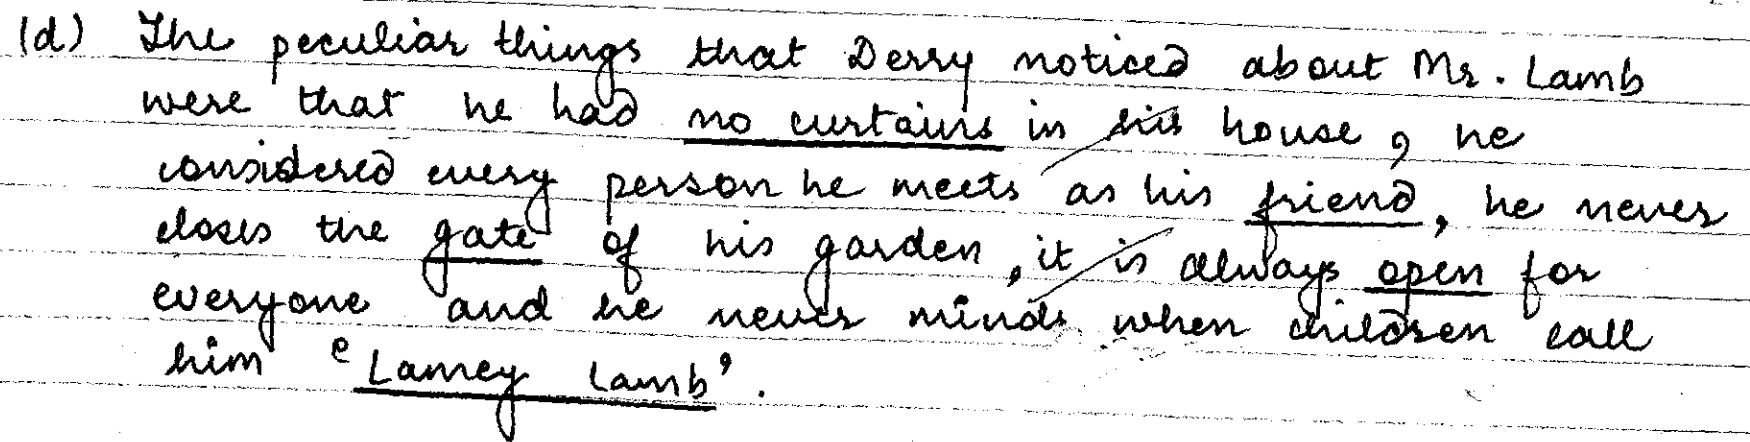 (d) The peculiar things that Derry noticed about Mr. Lamb
were that he had no curtains in his house, he
considered every person he meets as his friend, he never
closes the gate of his garden, it is always open for
everyone and he never minds when children call
him 'Lamey Lamb'.